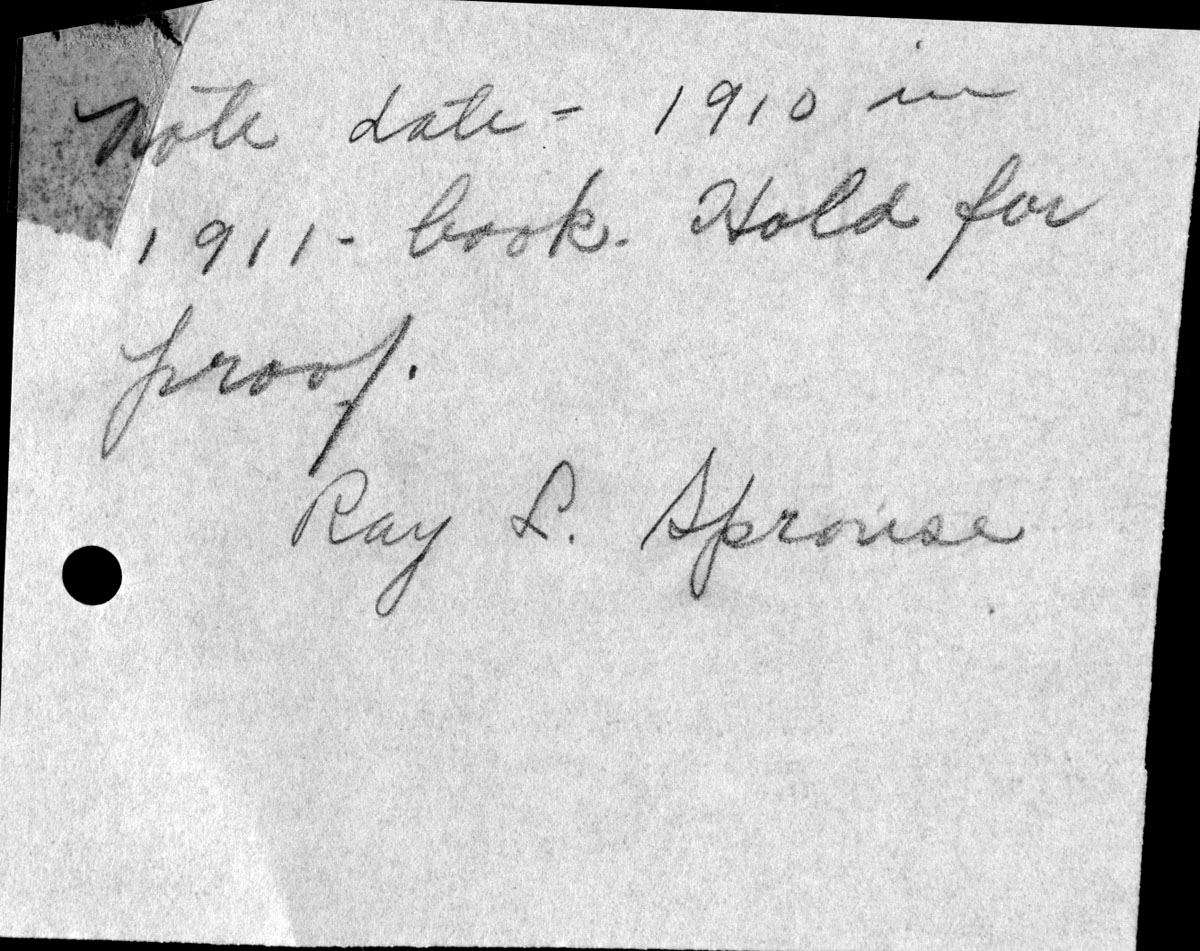 Note date - 1910 in
1911 - book. Hold for
proof.
Ray S. Sprouse